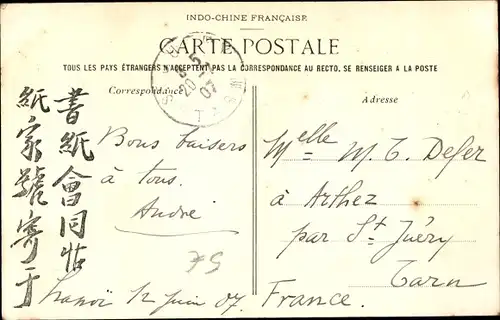 INDO-CHINE FRANÇAISE
CARTE POSTALE
TOUS LES PAYS ÉTRANGERS N'ACCEPTENT PAS LA CORRESPONDANCE AU RECTO, SE RENSEIGER A LA POSTE
Correspondance
Adresse
書紙會同帖
紙家號寄于
Bons baisers
à tous.
André
75
Hanoï 12 juin 07.
Melle M. T. Defer
à Arthez
par St Juéry
Tarn
France.